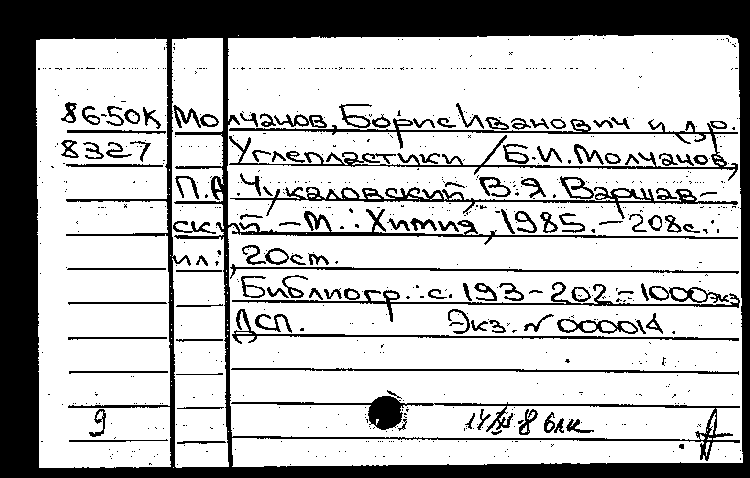 86-50К Молчанов, Борис Иванович и др.
8327 Углепластики / Б.И. Молчанов,
П.А. Чукаловский, В.Я. Варшав-
ский. – М.: Химия, 1985. – 208с.:
ил.; 20см.
Библиогр.: с. 193-202. – 1000экз
ДСП. Экз. № 000014.
9